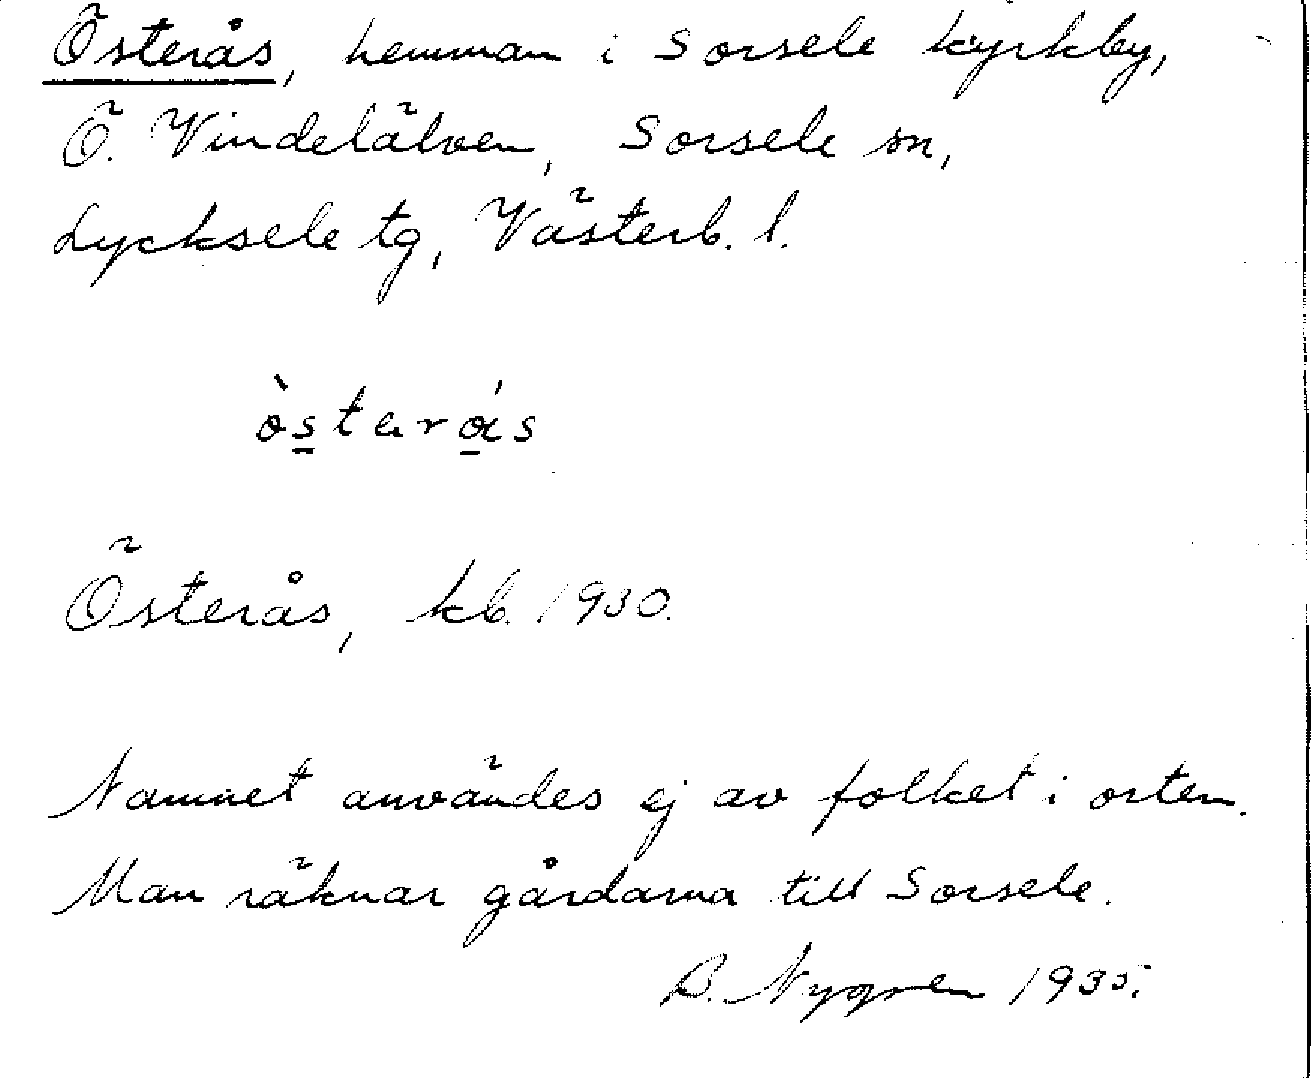 Österås, hemman i Sorsele kyrkby,
Ö. Vindelälven, Sorsele sn,
Lycksele tg, Västerb. l.
ò̀starás
Österås, kb. 1930.
Namnet användes ej av folket i orten.
Man räknar gårdarna till Sorsele.
B. Nygren 1935.